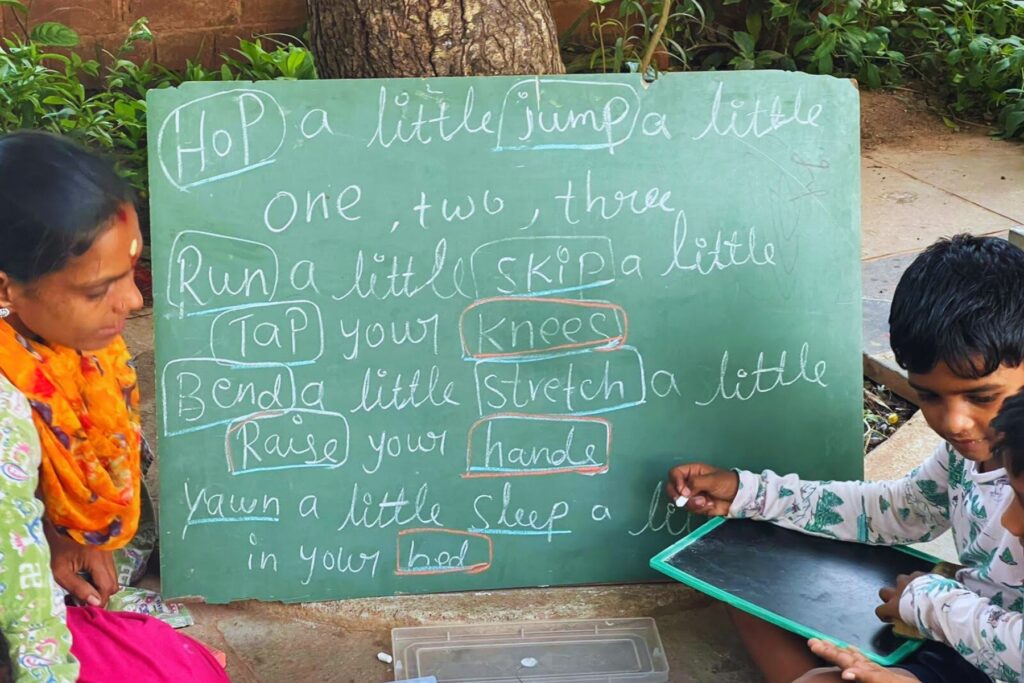 HoP a little jump a little
one, two, three
Run a little skip a little
Tap your knees
Bend a little stretch a little
Raise your hands
yawn a little sleep a
in your bed